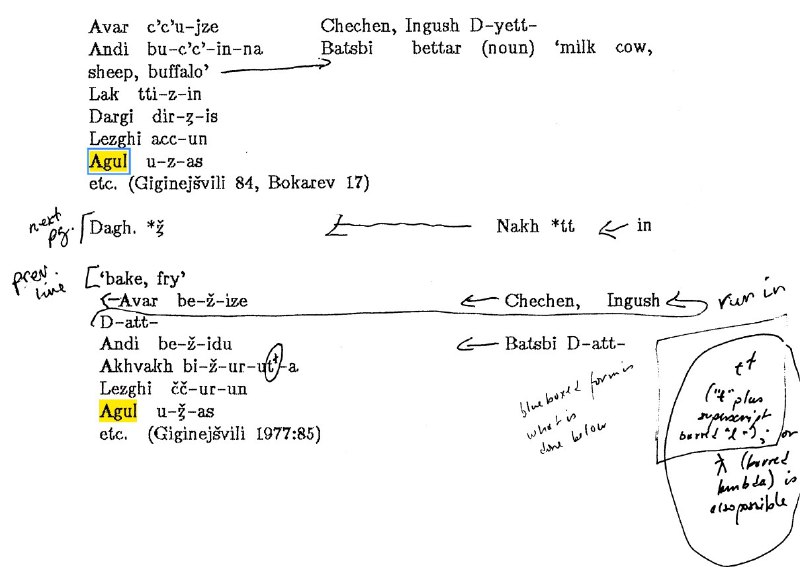 Avar c'c'u-jze Chechen, Ingush D-yett-
Andi bu-c'c'-in-na Batsbi bettar (noun) 'milk cow,
sheep, buffalo'
Lak tti-z-in
Dargi dir-z̧-is
Lezghi acc-un
Agul u-z-as
etc. (Giginejšvili 84, Bokarev 17)
next pg. [Dagh. *ž̧ Nakh *tt in
prev. line ['bake, fry'
Avar be-ž-ize Chechen, Ingush run in
D-att-
Andi be-ž-idu Batsbi D-att-
Akhvakh bi-ž-ur-utᵗ-a
Lezghi čč-ur-un
Agul u-ž̧-as
etc. (Giginejšvili 1977:85)
blue boxed form is
what is
done below
tᵗ
("t" plus
superscript
barred "l"), or
ƛ (barred
lambda) is
also possible